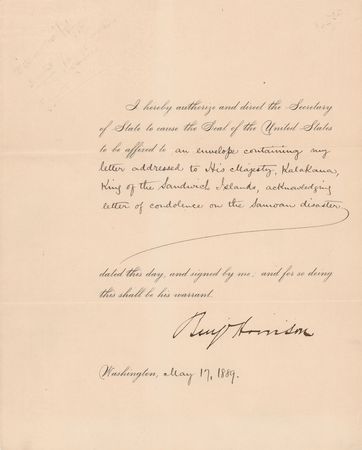 I hereby authorize and direct the Secretary
of State to cause the Seal of the United States
to be affixed to an envelope containing my
letter addressed to His Majesty, Kalakaua,
King of the Sandwich Islands, acknowledging
letter of condolence on the Samoan disaster,
dated this day, and signed by me: and for so doing
this shall be his warrant.
Benj Harrison
Washington, May 17, 1889.